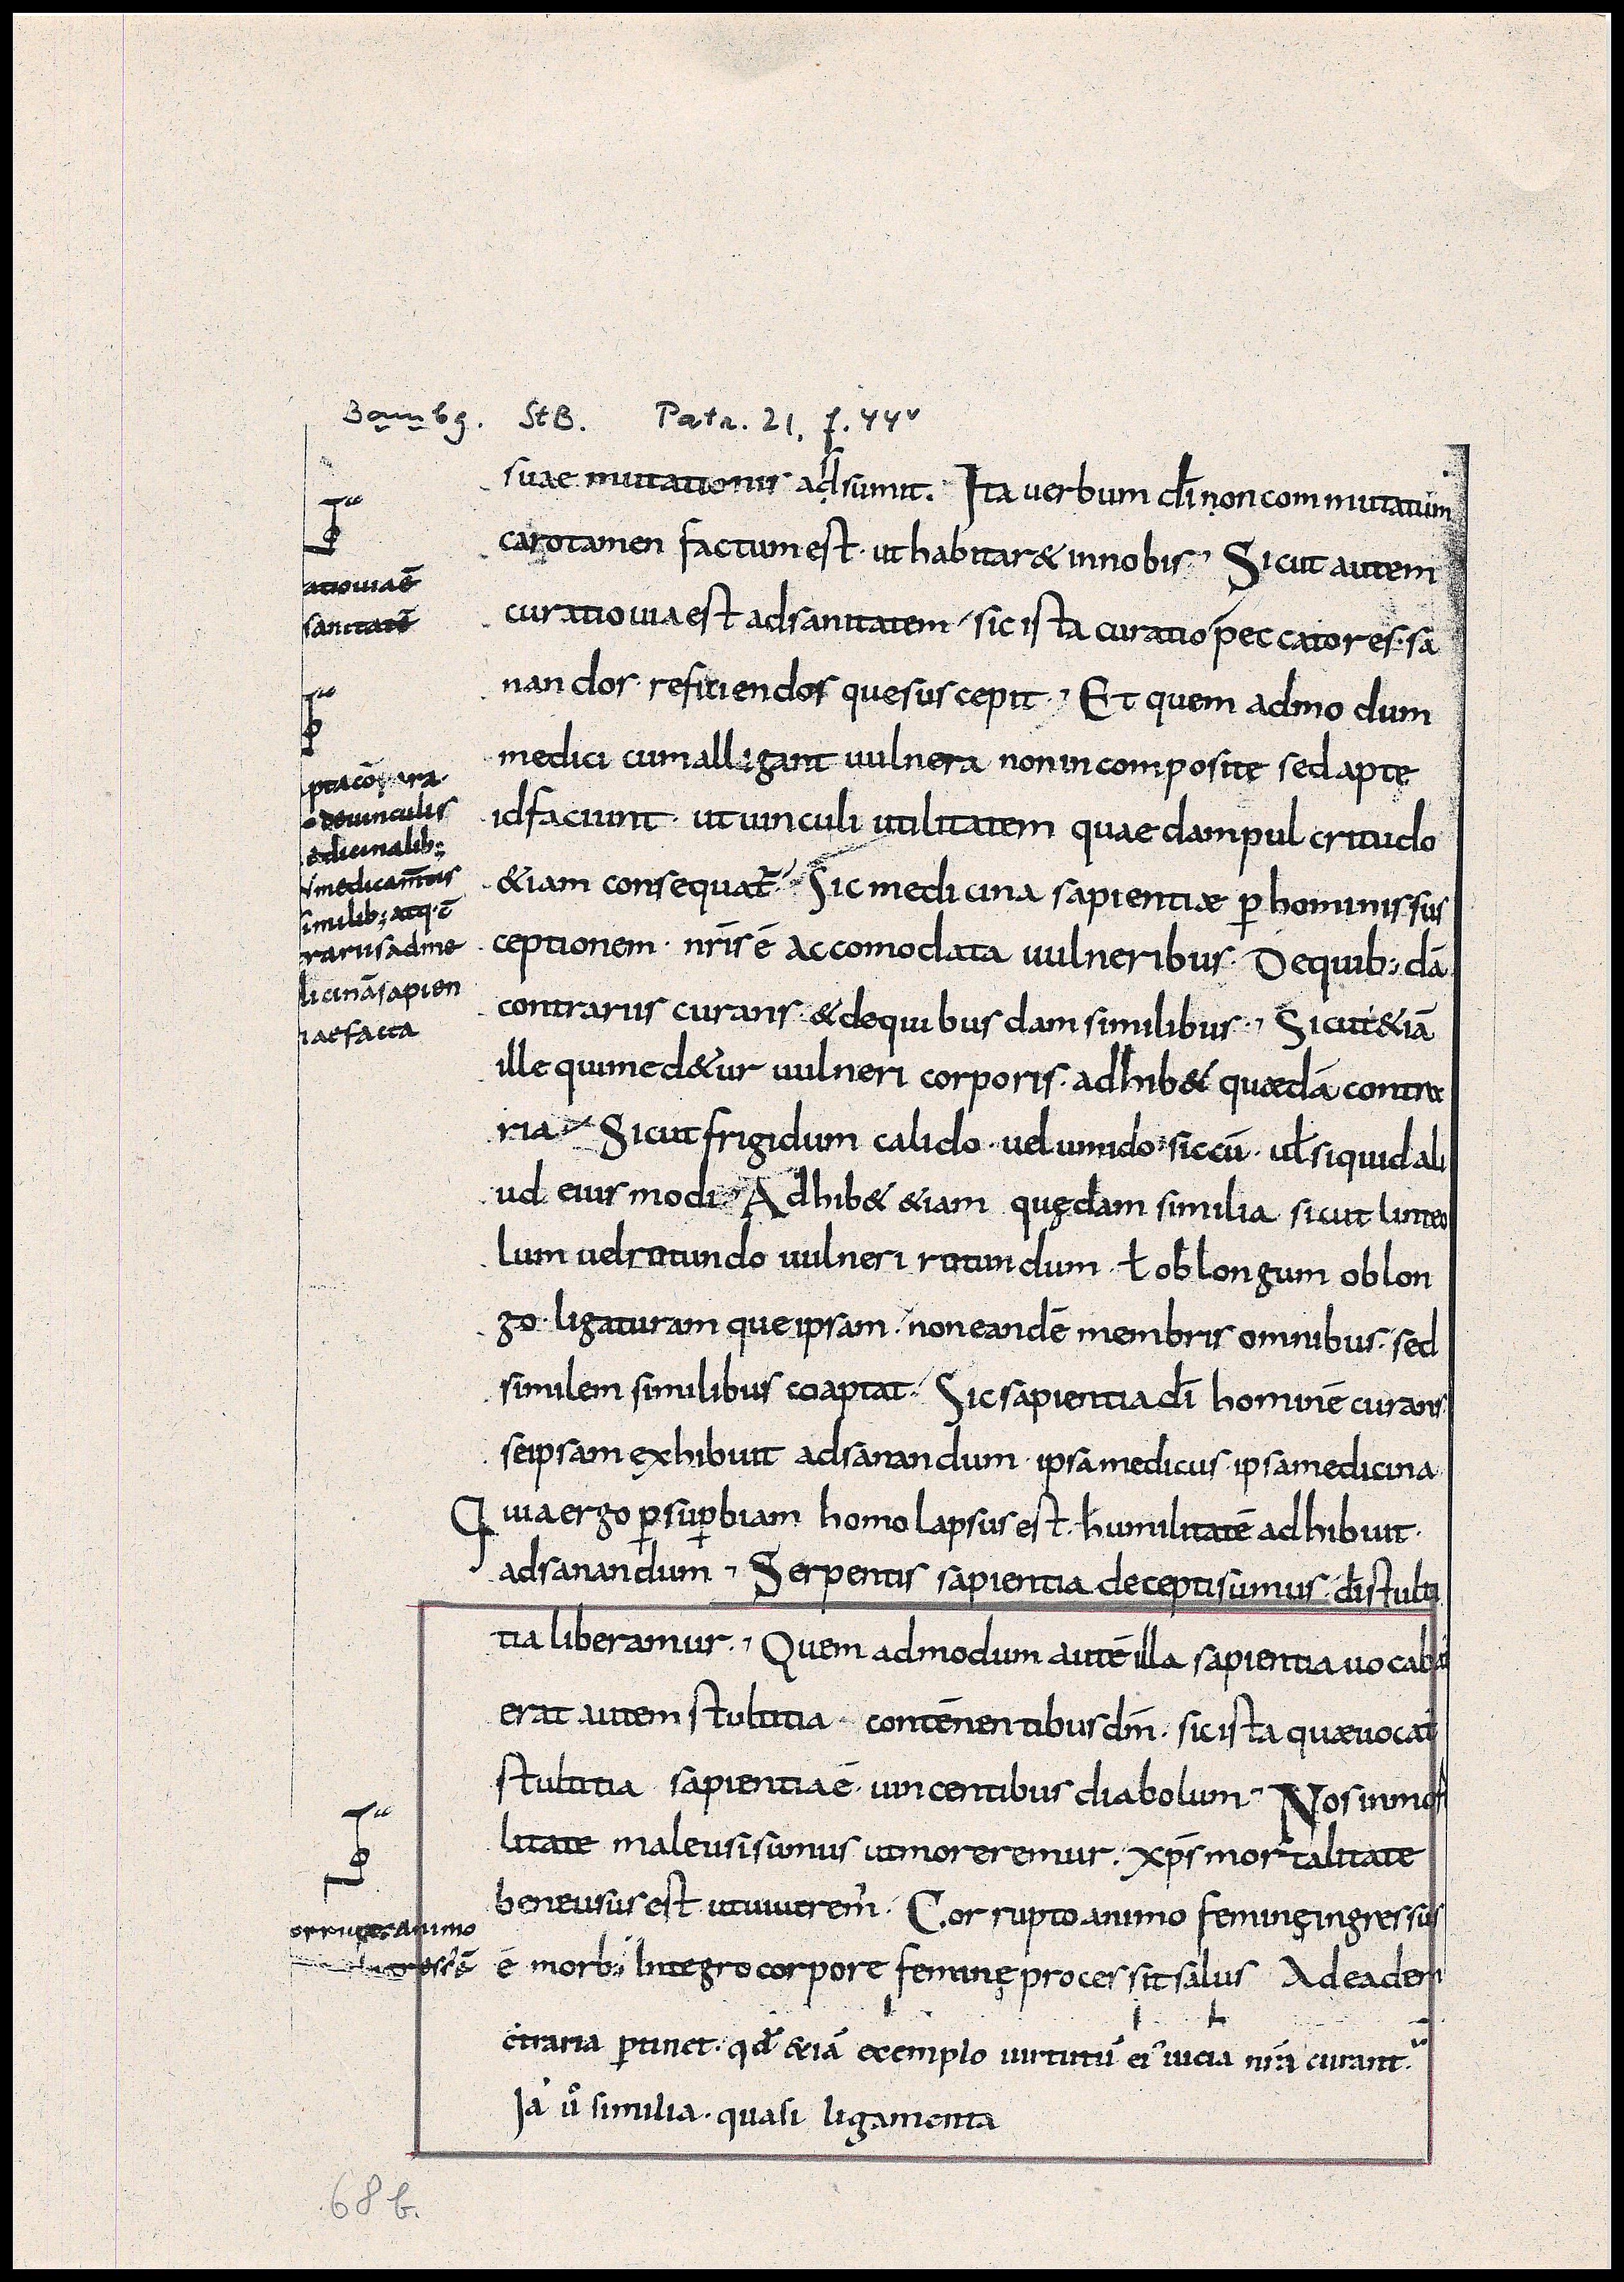 Bambg. StB. Patr. 21, f. 44v
suae mutationis adsumit. Ita verbum dī non commutatum
caro tamen factum est · ut habitar& in nobis · Sicut autem
curatio uia est ad sanitatem · sic ista curatio peccatores · sa
nandos · reficiendosque suscepit · Et quem admodum
medici cum alligant uulnera non incomposite sed aptę
id faciunt · ut uinculi utilitatem quaedam pulcritudo
&iam consequat̄ · Sic medicina sapientiæ ꝑ hominis sus
ceptionem · nr̄is ē accomodata uulneribus · De quib; dā
contrariis curans · & de quibusdam similibus · Sicut &iā
ille qui med&ur uulneri corporis · adhib& quædā contra
ria · Sicut frigidum calido · uel umido siccū · uł si quid ali
ud eius modi · Adhib& &iam quędam similia sicut linteo
lum uel rotundo uulneri rotundum · ł oblongum oblon
go · ligaturamque ipsam · non eandē membris omnibus · sed
similem similibus coaptat · Sic sapientia dī hominē curans
se ipsam exhibuit ad sanandum · ipsa medicus · ipsa medicina
Quia ergo ꝑ suꝑbiam homo lapsus est · humilitatē adhibuit ·
ad sanandum · Serpentis sapientia decepti sumus · dī stulti
tia liberamur · Quem admodum autē illa sapientia uocabat
erat autem stultitia · contēnentibus dm̄ · sic ista quæ uocat
stultitia sapientia ē · uincentibus diabolum · Nos inmor
litate male usi sumus ut moreremur · xp̄s mortalitate
bene usus est ut uiueremʼ · Corrupto animo feminę ingressus
ē morb; Integro corpore feminę processit salus Ad eadem
c̄traria ꝑtinet · qd̄ &iā exemplo uirtutū eiʼ uicia nr̄a curant̄ ·
Ja u̇ similia · quasi ligamenta
atio uia ē
sanitatē
pta cōpara
de uinculis
edicinalib;
medicam̄tis
imilib; atq· c̄
rariis ad me
licinā sapien
iae facta
orrupto animo
68 b.